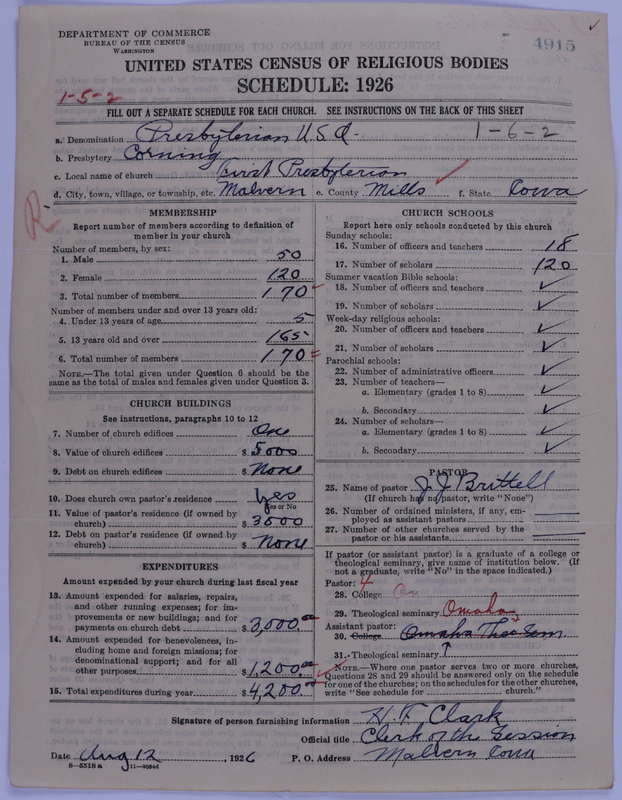 DEPARTMENT OF COMMERCE
BUREAU OF THE CENSUS
WASHINGTON
4915
UNITED STATES CENSUS OF RELIGIOUS BODIES
SCHEDULE: 1926
1-5-2
FILL OUT A SEPARATE SCHEDULE FOR EACH CHURCH. SEE INSTRUCTIONS ON THE BACK OF THIS SHEET
a. Denomination Presbyterian U.S.A. 1-6-2
b. Presbytery Corning
c. Local name of church First Presbyterian
d. City, town, village, or township, etc. Malvern e. County Mills f. State Iowa
R
MEMBERSHIP
Report number of members according to definition of
member in your church
Number of members, by sex:
1. Male 50
2. Female 120
3. Total number of members 170
Number of members under and over 13 years old:
4. Under 13 years of age 5
5. 13 years old and over 165
6. Total number of members 170
NOTE.—The total given under Question 6 should be the
same as the total of males and females given under Question 3.
CHURCH BUILDINGS
See instructions, paragraphs 10 to 12
7. Number of church edifices One
8. Value of church edifices $ 5000
9. Debt on church edifices $ None
10. Does church own pastor's residence Yes
Yes or No
11. Value of pastor's residence (if owned by
church) $ 3000
12. Debt on pastor's residence (if owned by
church) $ None
EXPENDITURES
Amount expended by your church during last fiscal year
13. Amount expended for salaries, repairs,
and other running expenses; for im-
provements or new buildings; and for
payments on church debt $ 3,000.00
14. Amount expended for benevolences, in-
cluding home and foreign missions; for
denominational support; and for all
other purposes $ 1,200.00
15. Total expenditures during year $ 4,200.00
CHURCH SCHOOLS
Report here only schools conducted by this church
Sunday schools:
16. Number of officers and teachers 18
17. Number of scholars 120
Summer vacation Bible schools:
18. Number of officers and teachers ✓
19. Number of scholars ✓
Week-day religious schools:
20. Number of officers and teachers ✓
21. Number of scholars ✓
Parochial schools:
22. Number of administrative officers ✓
23. Number of teachers—
a. Elementary (grades 1 to 8) ✓
b. Secondary ✓
24. Number of scholars—
a. Elementary (grades 1 to 8) ✓
b. Secondary ✓
PASTOR
25. Name of pastor J. J. Brittell
(If church has no pastor, write "None")
26. Number of ordained ministers, if any, em-
ployed as assistant pastors
27. Number of other churches served by the
pastor or his assistants
If pastor (or assistant pastor) is a graduate of a college or
theological seminary, give name of institution below. (If
not a graduate, write "No" in the space indicated.)
Pastor: 4
28. College
29. Theological seminary Omaha
Assistant pastor:
30. College Omaha Theo Sem
31. Theological seminary
NOTE.—Where one pastor serves two or more churches,
Questions 28 and 29 should be answered only on the schedule
for one of the churches; on the schedules for the other churches,
write "See schedule for church."
Signature of person furnishing information H. F. Clark
Official title Clerk of the Session
Date Aug 12, 1926 P. O. Address Malvern Iowa
8-5518 a